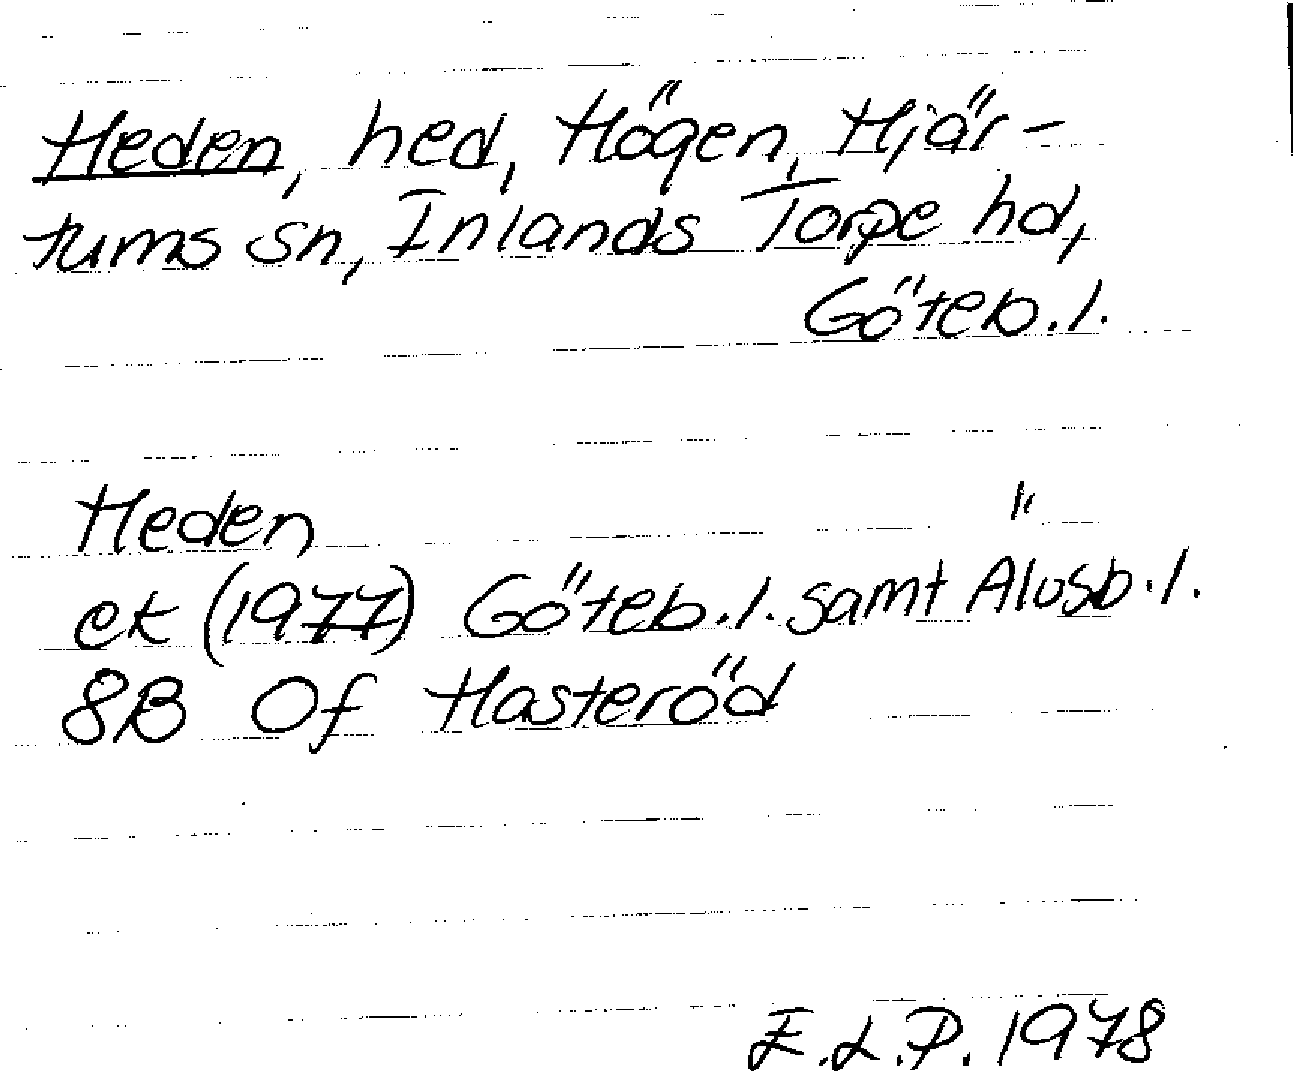 Heden, hed, Högen, Hjär-
tums sn, Inlands Torpe hd,
Göteb.l.
Heden
ek (1977) Göteb.l. samt Älvsb.l.
8B 0f Hasteröd
E.L.P. 1978